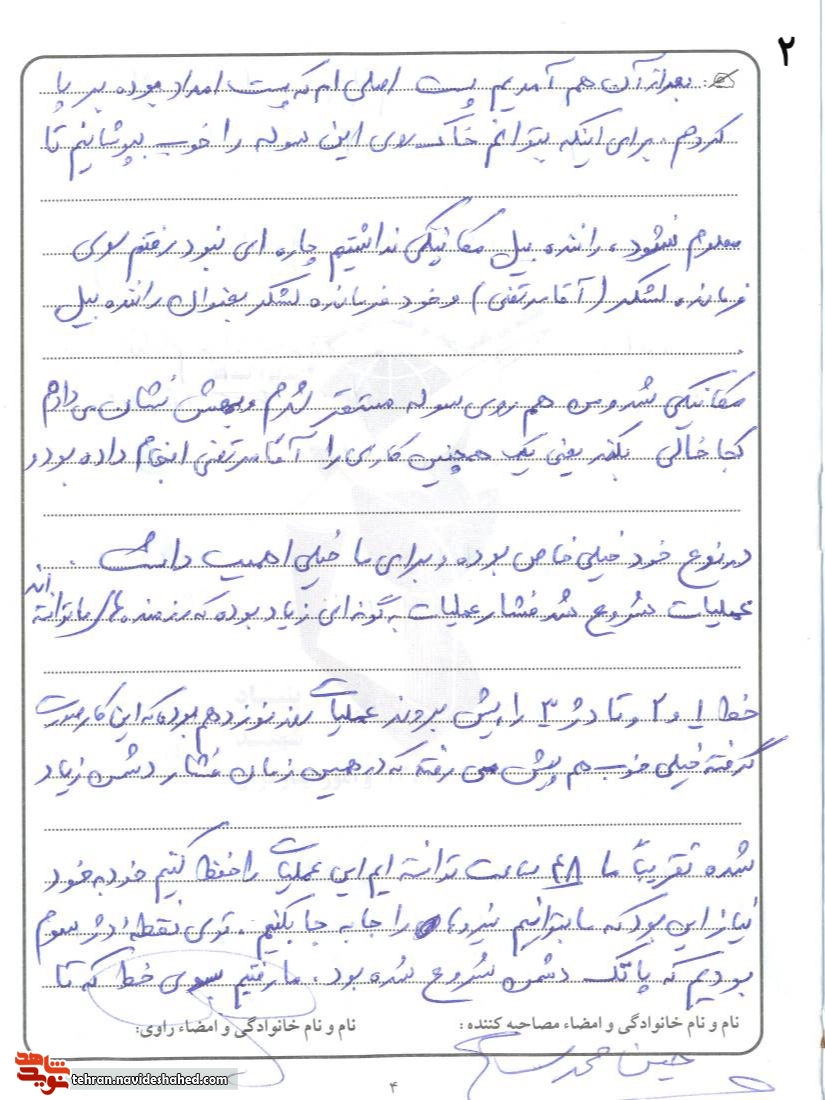 ۲
بعد از آن هم آمدیم پست اصلی ام که پست امداد بوده برپا
کردم. برای اینکه بتوانم خاک روی این سوله را خوب بپوشانیم تا
معلوم نشود، راننده بیل مکانیکی نداشتیم چاره ای نبود رفتم سوی
فرمانده لشکر (آقا مرتضی) و خود فرمانده لشکر بعنوان راننده بیل
مکانیکی شد و من هم روی سوله مستقر شدم و بهش نشان می دادم
کجا خالی بکند یعنی یک همچنین کاری را آقا مرتضی انجام داده بود و
در نوع خود خیلی خاص بوده و برای ما خیلی اهمیت داشت.
عملیات شروع شد فشار عملیات به گونه ای زیاد بوده که رزمنده ها توانسته اند
خط ۱ و ۲ و تا دژ ۳ را پیش بروند عملیات روز نوزدهم بوده که این کار صورت
گرفته خیلی خوب هم پیش می رفته که در همین زمان فشار دشمن زیاد
شده تقریباً ما ۴۸ ساعت توانسته ایم این عملیات را حفظ کنیم خود به خود
نیاز این بود که ما بتوانیم نیروها را جا به جا بکنیم. توی نقطه دژ سوم
بودیم که پاتک دشمن شروع شده بود. ما رفتیم بسوی خط که تا
نام و نام خانوادگی و امضاء مصاحبه کننده :
نام و نام خانوادگی و امضاء راوی:
حسین محمد
۴
نوید شاهد
tehran.navideshahed.com